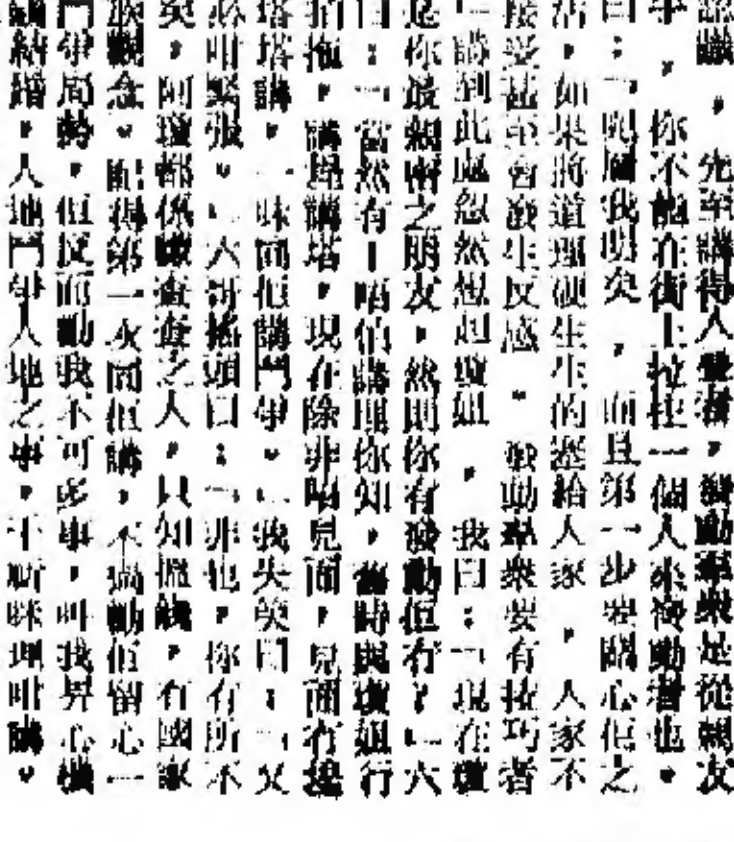 認識,先至講得人者,發動羣衆是從親友
手,你不能在街上拉住一個人來發動着也。
曰:「呢層我明矣,而且第一步要關心佢之
活,如果將道理硬生生的塞給人家,人家不
接受甚至會發生反感。發動羣衆要有技巧者
」講到此處忽然想起瓊姐,我曰:「現在瓊
是你最親密之朋友,然則你有發動佢冇?」六
曰:「當然有!唔怕講埋你知,舊時與瓊姐行
拍拖,講是講塔,現在除非唔見面,見面冇提
塔塔講,一味同佢講鬥爭。」我失笑曰:「又
必咁緊張。」六哥搖頭曰:「非也,你有所不
矣,阿瓊都係矇查查之人,只知搵錢,冇國家
族觀念。記得第一次同佢講,不過勸佢留心一
鬥爭局勢,但反而勸我不可多事,叫我畀心機
納,人地鬥爭人地之事,千祈咪理咁講。